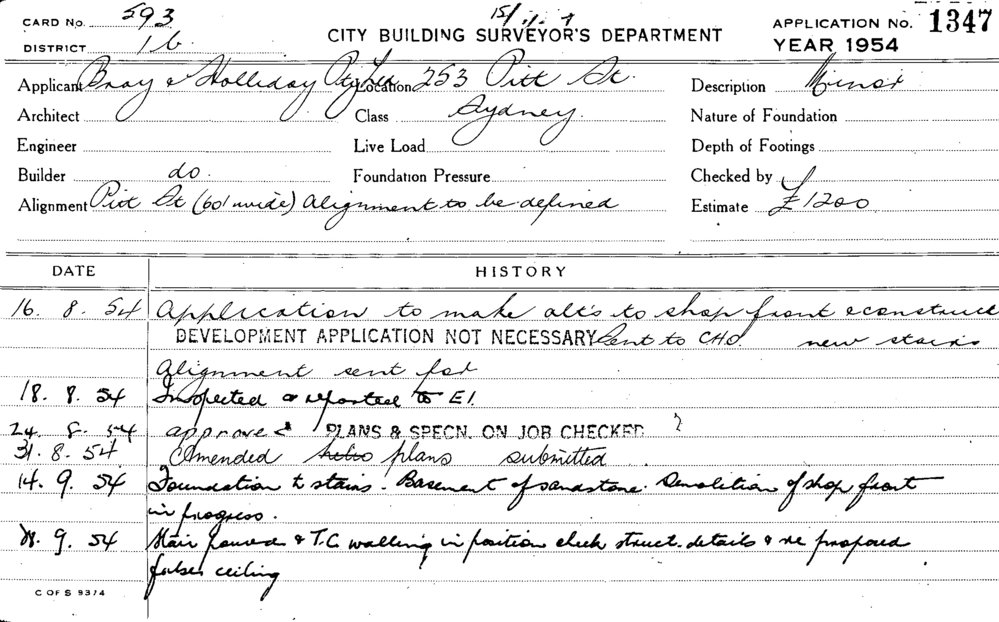 CARD NO. 593
CITY BUILDING SURVEYOR'S DEPARTMENT
APPLICATION NO. 1347
DISTRICT 16
YEAR 1954
Applicant Bray & Holliday Pty Ltd Location 253 Pitt St. Description Minor
Architect Class Sydney. Nature of Foundation
Engineer Live Load Depth of Footings
Builder do. Foundation Pressure Checked by
Alignment Pitt St (60' wide) Alignment to be defined Estimate £1200
DATE HISTORY
16. 8. 54 Application to make alt's to shop front & construct
DEVELOPMENT APPLICATION NOT NECESSARY Sent to CHO new stairs
Alignment sent for
18. 8. 54 Inspected & reported to E1.
24. 8. 54 approved PLANS & SPECN. ON JOB CHECKED
31. 8. 54 Amended plans submitted
14. 9. 54 Foundation to stairs. Basement of sandstone. Demolition of shop front
in progress.
9. 54 Stair poured & T.C walling in position check struct. details & re proposed
false ceiling
C OF S 9374